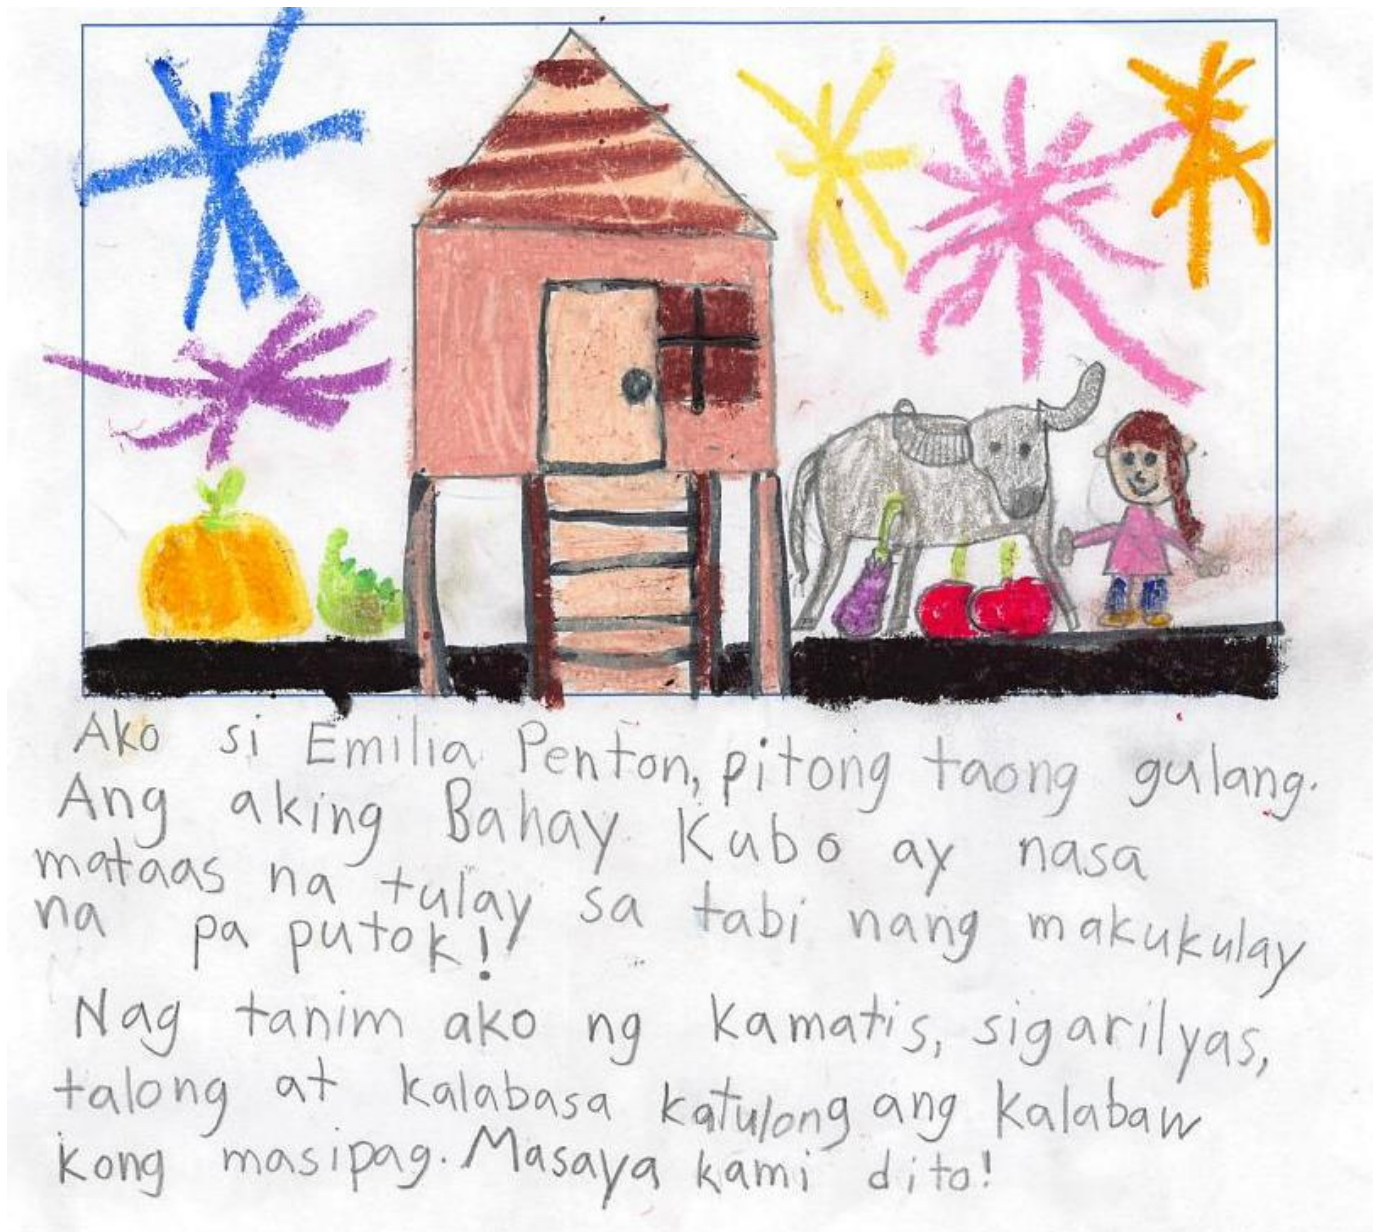 Ako si Emilia Penton, pitong taong gulang.
Ang aking Bahay Kubo ay nasa
mataas na tulay sa tabi nang makukulay
na pa putok!
Nag tanim ako ng kamatis, sigarilyas,
talong at kalabasa katulong ang kalabaw
kong masipag. Masaya kami dito!